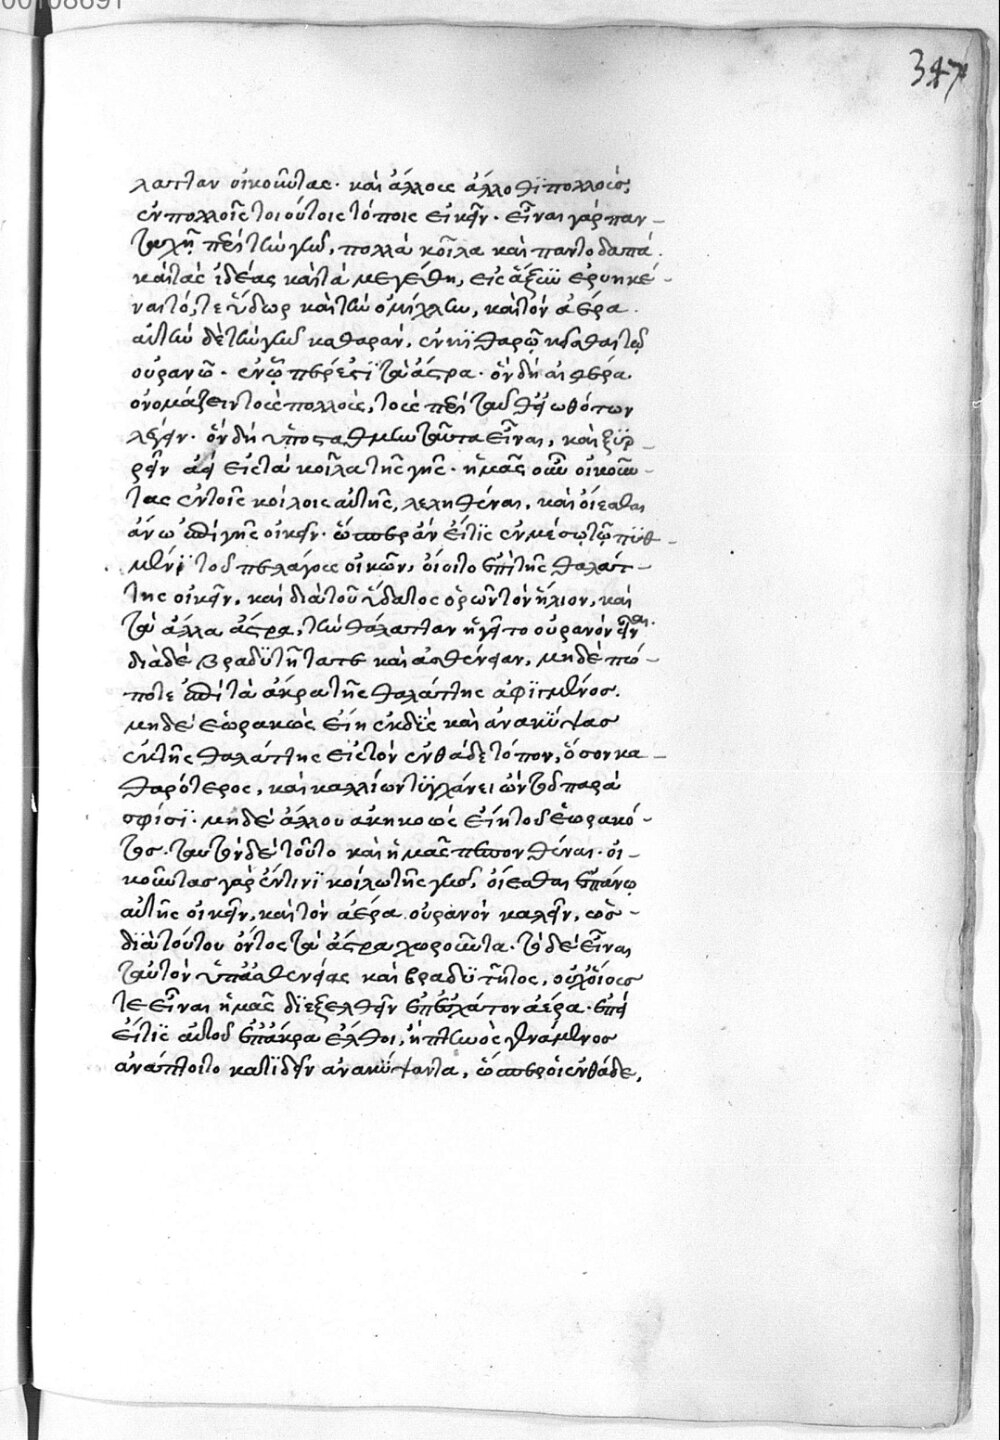 00108691
347
λατταν οἰκοῦντας· καὶ ἄλλους ἄλλοθι πολλοὺς,
ἐν πολλοῖς τοιούτοις τόποις οἰκεῖν· εἶναι γὰρ παν-
ταχῆ περὶ τὴν γῆν, πολλὰ κοῖλα καὶ παντοδαπὰ
καὶ τὰς ἰδέας καὶ τὰ μεγέθη, εἰς ἃ ξυνερρυηκέ-
ναι τό, τε ὕδωρ καὶ τὴν ὁμίχλην, καὶ τὸν ἀέρα·
αὐτὴν δὲ τὴν γῆν καθαρὰν, ἐν καθαρῷ κεῖσθαι τῷ
οὐρανῷ· ἐν ᾧ πέρ ἐστι τὰ ἄστρα· ὃν δὴ αἰθέρα
ὀνομάζειν τοὺς πολλοὺς, τοὺς περὶ τὰ τοιαῦτα εἰωθότων
λέγειν· οὗ δὴ ὑποστάθμην ταῦτα εἶναι, καὶ ξυρ-
ρεῖν ἀεὶ εἰς τὰ κοῖλα τῆς γῆς· ἡμᾶς οὖν οἰκοῦν-
τας ἐν τοῖς κοίλοις αὐτῆς, λεληθέναι, καὶ οἴεσθαι
ἄνω ἐπὶ γῆς οἰκεῖν· ὥσπερ ἂν εἴ τις ἐν μέσῳ τῷ πυθ-
μένι τοῦ πελάγους οἰκῶν, οἴοιτο ἐπὶ τῆς θαλάτ-
της οἰκεῖν, καὶ διὰ τοῦ ὕδατος ὁρῶν τὸν ἥλιον, καὶ
τὰ ἄλλα ἄστρα, τὴν θάλατταν ἡγεῖτο οὐρανὸν εἶναι·
διὰ δὲ βραδυτῆτά τε καὶ ἀσθένειαν, μηδὲ πώ-
ποτε ἐπὶ τὰ ἄκρα τῆς θαλάττης ἀφιγμένος.
μηδὲ ἑωρακὼς εἴη ἐκδὺς καὶ ἀνακύψας
ἐκ τῆς θαλάττης εἰς τὸν ἐνθάδε τόπον, ὅσον κα-
θαρότερος, καὶ καλλίων τυγχάνει ὢν τοῦ παρὰ
σφίσι· μηδὲ ἄλλου ἀκηκοὼς εἴη τοῦ ἑωρακό-
τος. ταυτὸν δὲ τοῦτο καὶ ἡμᾶς πεπονθέναι· οἰ-
κοῦντας γὰρ ἔν τινι κοίλῳ τῆς γῆς, οἴεσθαι ἐπάνω
αὐτῆς οἰκεῖν, καὶ τὸν ἀέρα οὐρανὸν καλεῖν, ὡς-
διὰ τούτου ὄντος τὰ ἄστρα χωροῦντα· τὸ δὲ εἶναι
ταυτὸν ὑπ' ἀσθενείας καὶ βραδυτῆτος, οὐχ οἵους
τε εἶναι ἡμᾶς διεξελθεῖν ἐπ' ἔσχατον ἀέρα· ἐπεὶ
εἴ τις αὐτοῦ ἐπ' ἄκρα ἔλθοι, ἢ πτηνὸς γενόμενος
ἀνάπτοιτο κατιδεῖν ἀνακύψαντα, ὥσπερ οἱ ἐνθάδε,